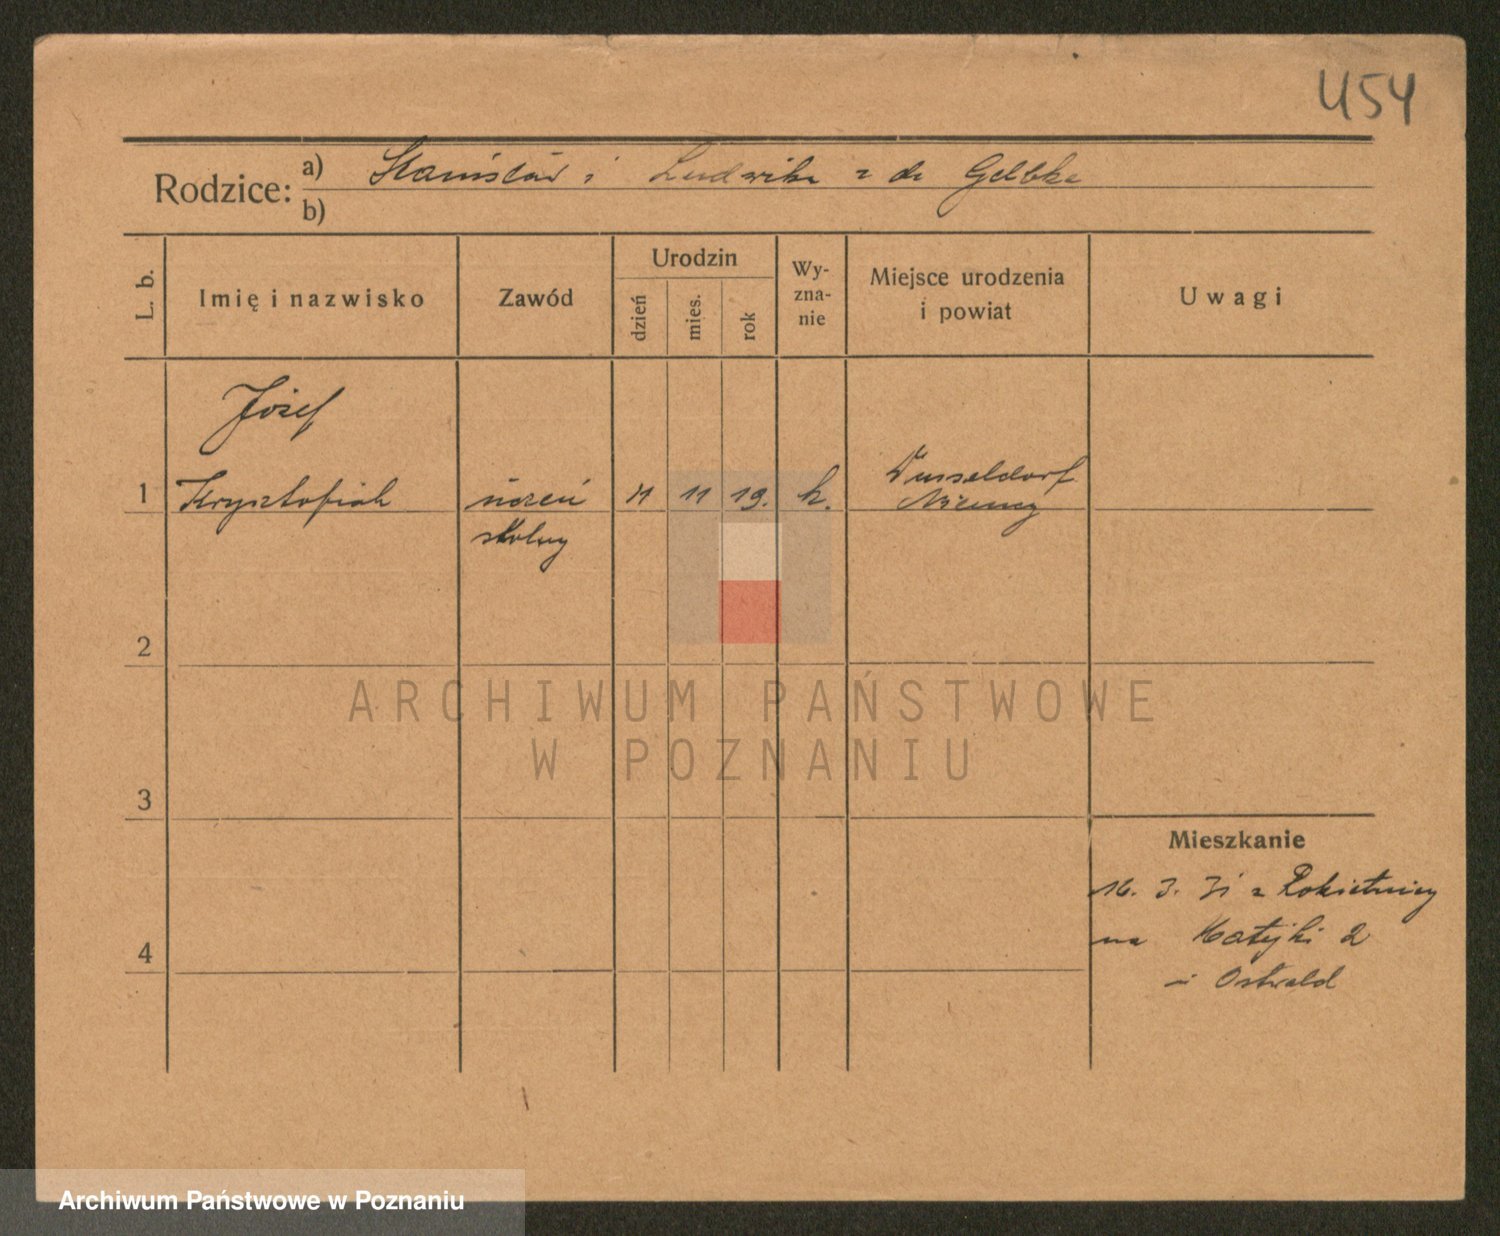 454
Rodzice: a) Stanisław i Ludwika z d. Gelbke
b)
L. b.
Imię i nazwisko
Zawód
Urodzin
dzień
mies.
rok
Wy-
zna-
nie
Miejsce urodzenia
i powiat
Uwagi
Józef
1 Krysztofiak uczeń 11 11 19. k. Dusseldorf
szkolny Niemcy
2
3
4
Mieszkanie
16. 3. 31 z Rokietnicy
na Matejki 2
u Ostwald
ARCHIWUM PAŃSTWOWE
W POZNANIU
Archiwum Państwowe w Poznaniu